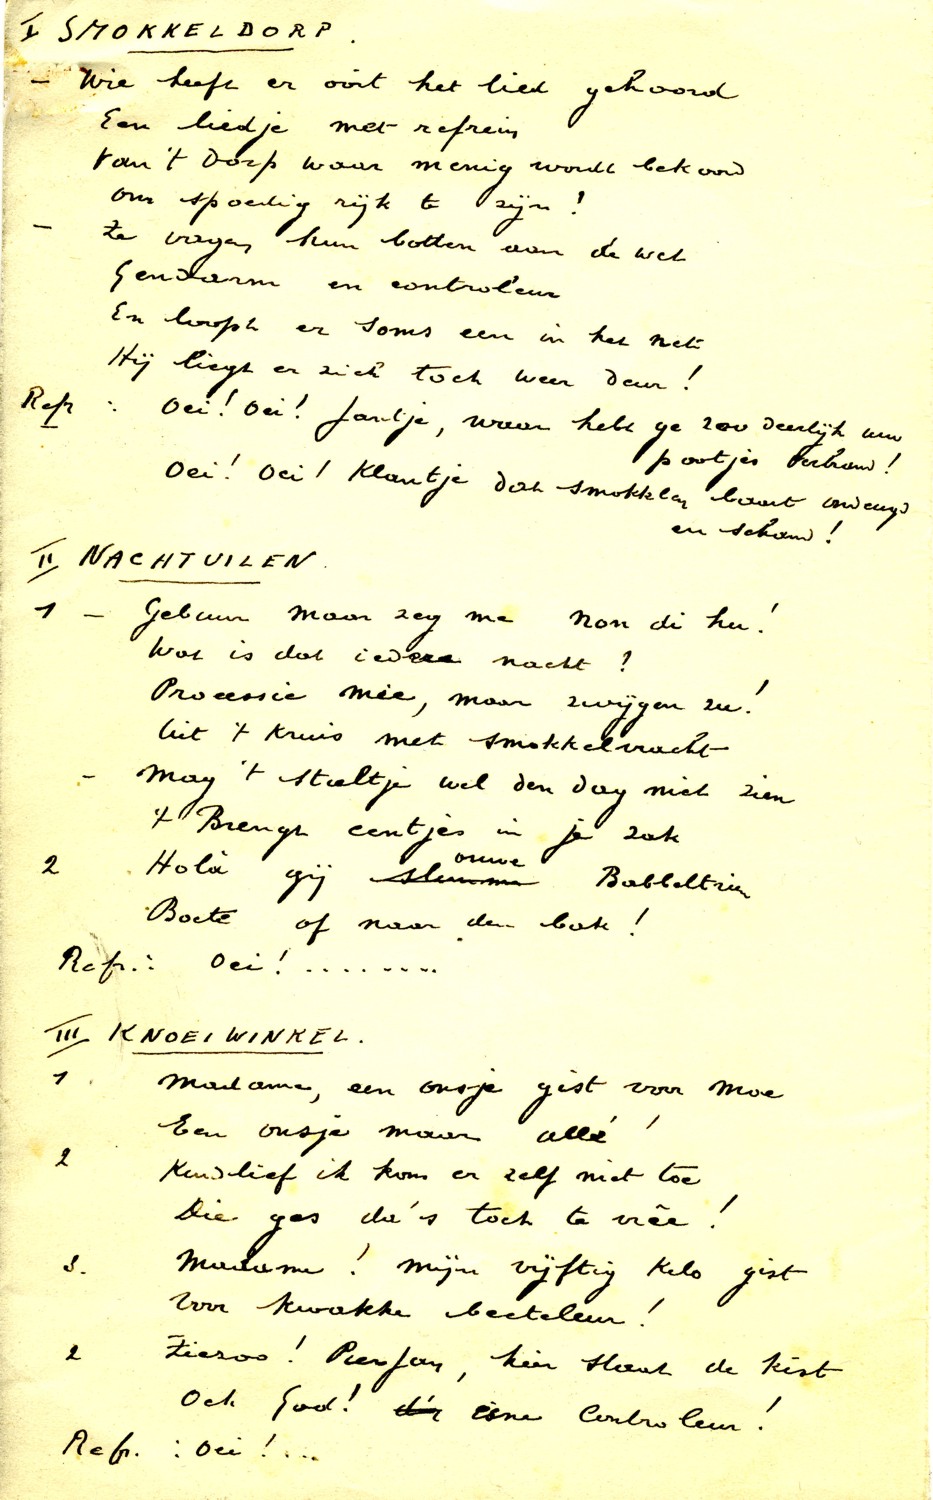 I SMOKKELDORP.
- Wie heeft er ooit het lied gehoord
Een liedje met refrein
Van 't Dorp waar menig wordt bekoord
Om spoedig rijk te zijn!
- Ze vagen hun botten aan de wet
Gendarm en controleur
En loopt er soms een in het net
Hij liegt er zich toch weer deur!
Refr : Oei! Oei! Jantje, waar hebt ge zoo deerlijk uw
pootjes verbrand!
Oei! Oei! Klantje dat smokklen baart ondeugd
en schand!
II NACHTUILEN.
1 - Gebuur maar zeg me non di hu!
Wat is dat iedere nacht?
Processie mêe, maar zwijgen zu!
Uit 't Kruis met smokkelvracht
- Mag 't staeltje wel den dag niet zien
't Brengt centjes in je zak
2 Holà gij ouwe Babbeltrien
Boete of naar den bak!
Refr. : Oei! ........
III KNOEIWINKEL.
1 Madame, een onsje gist voor Moe
Een onsje maar allé!
2 Kindlief ik kom er zelf niet toe
Die ges da's toch te vrêe!
3. Madame! Mijn vijftig kilo gist
Voor Kwakke beeteleur!
2 Ziezoo! Pier Jan, hier staat de kist
Och God! eene Controleur!
Refr. : Oei! ...